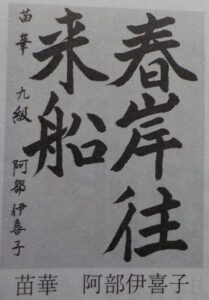 春岸往
来船
苗華 九級 阿部伊喜子
苗華 阿部伊喜子